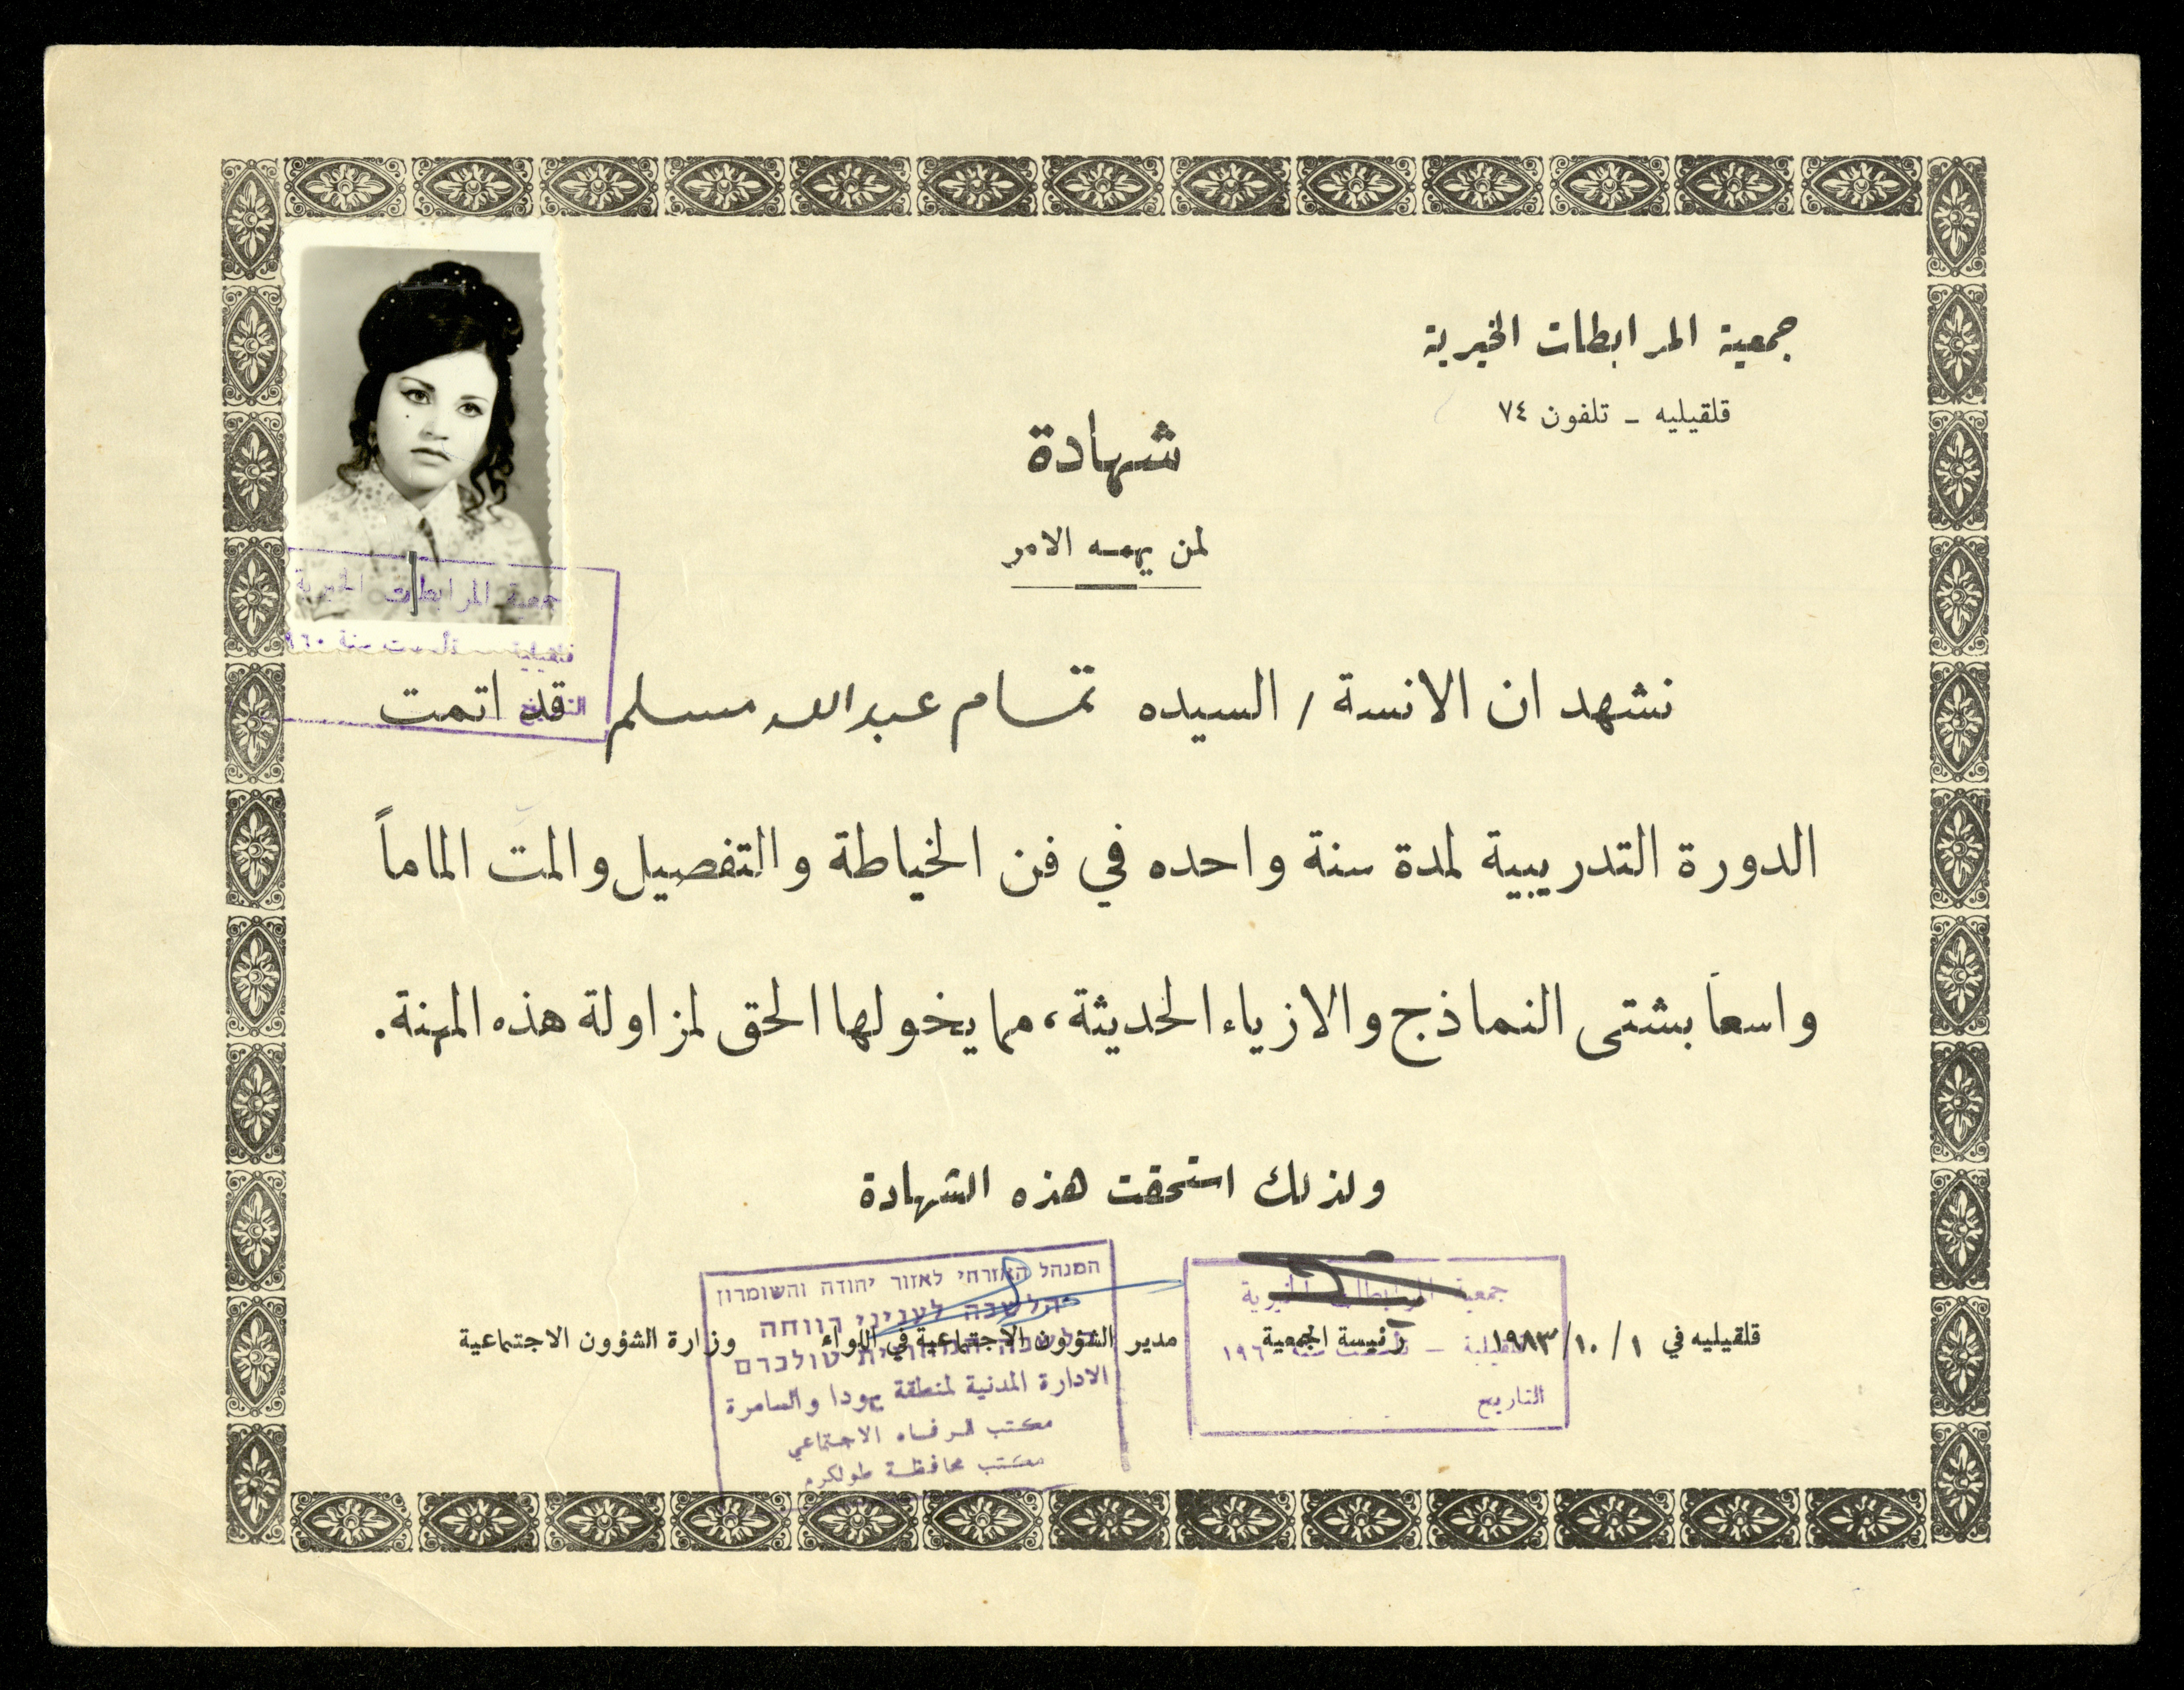 جمعية المرابطات الخيرية
قلقيليه - تلفون ٧٤
شهادة
لمن يهمه الامر
جمعية المرابطات الخيرية
قلقيلية تأسست سنة ١٩٦٠
التاريخ
نشهد ان الانسة / السيده تمام عبدالله مسلم قد اتمت
الدورة التدريبية لمدة سنة واحده في فن الخياطة والتفصيل والمتّ الماماً
واسعاً بشتى النماذج والازياء الحديثة، مما يخولها الحق لمزاولة هذه المهنة.
ولذلك استحقت هذه الشهادة
قلقيليه في ١ /١٠/ ١٩٨٣ رئيسة الجمعية مدير الشؤون الاجتماعية في اللواء وزارة الشؤون الاجتماعية
جمعية المرابطات الخيرية
قلقيلية - تأسست سنة ١٩٦٠
التاريخ
המנהל האזרחי לאזור יהודה והשומרון
לעניני רווחה
טולכרם
الادارة المدنية لمنطقة يهودا والسامرة
مكتب الرفاه الاجتماعي
مكتب محافظة طولكرم